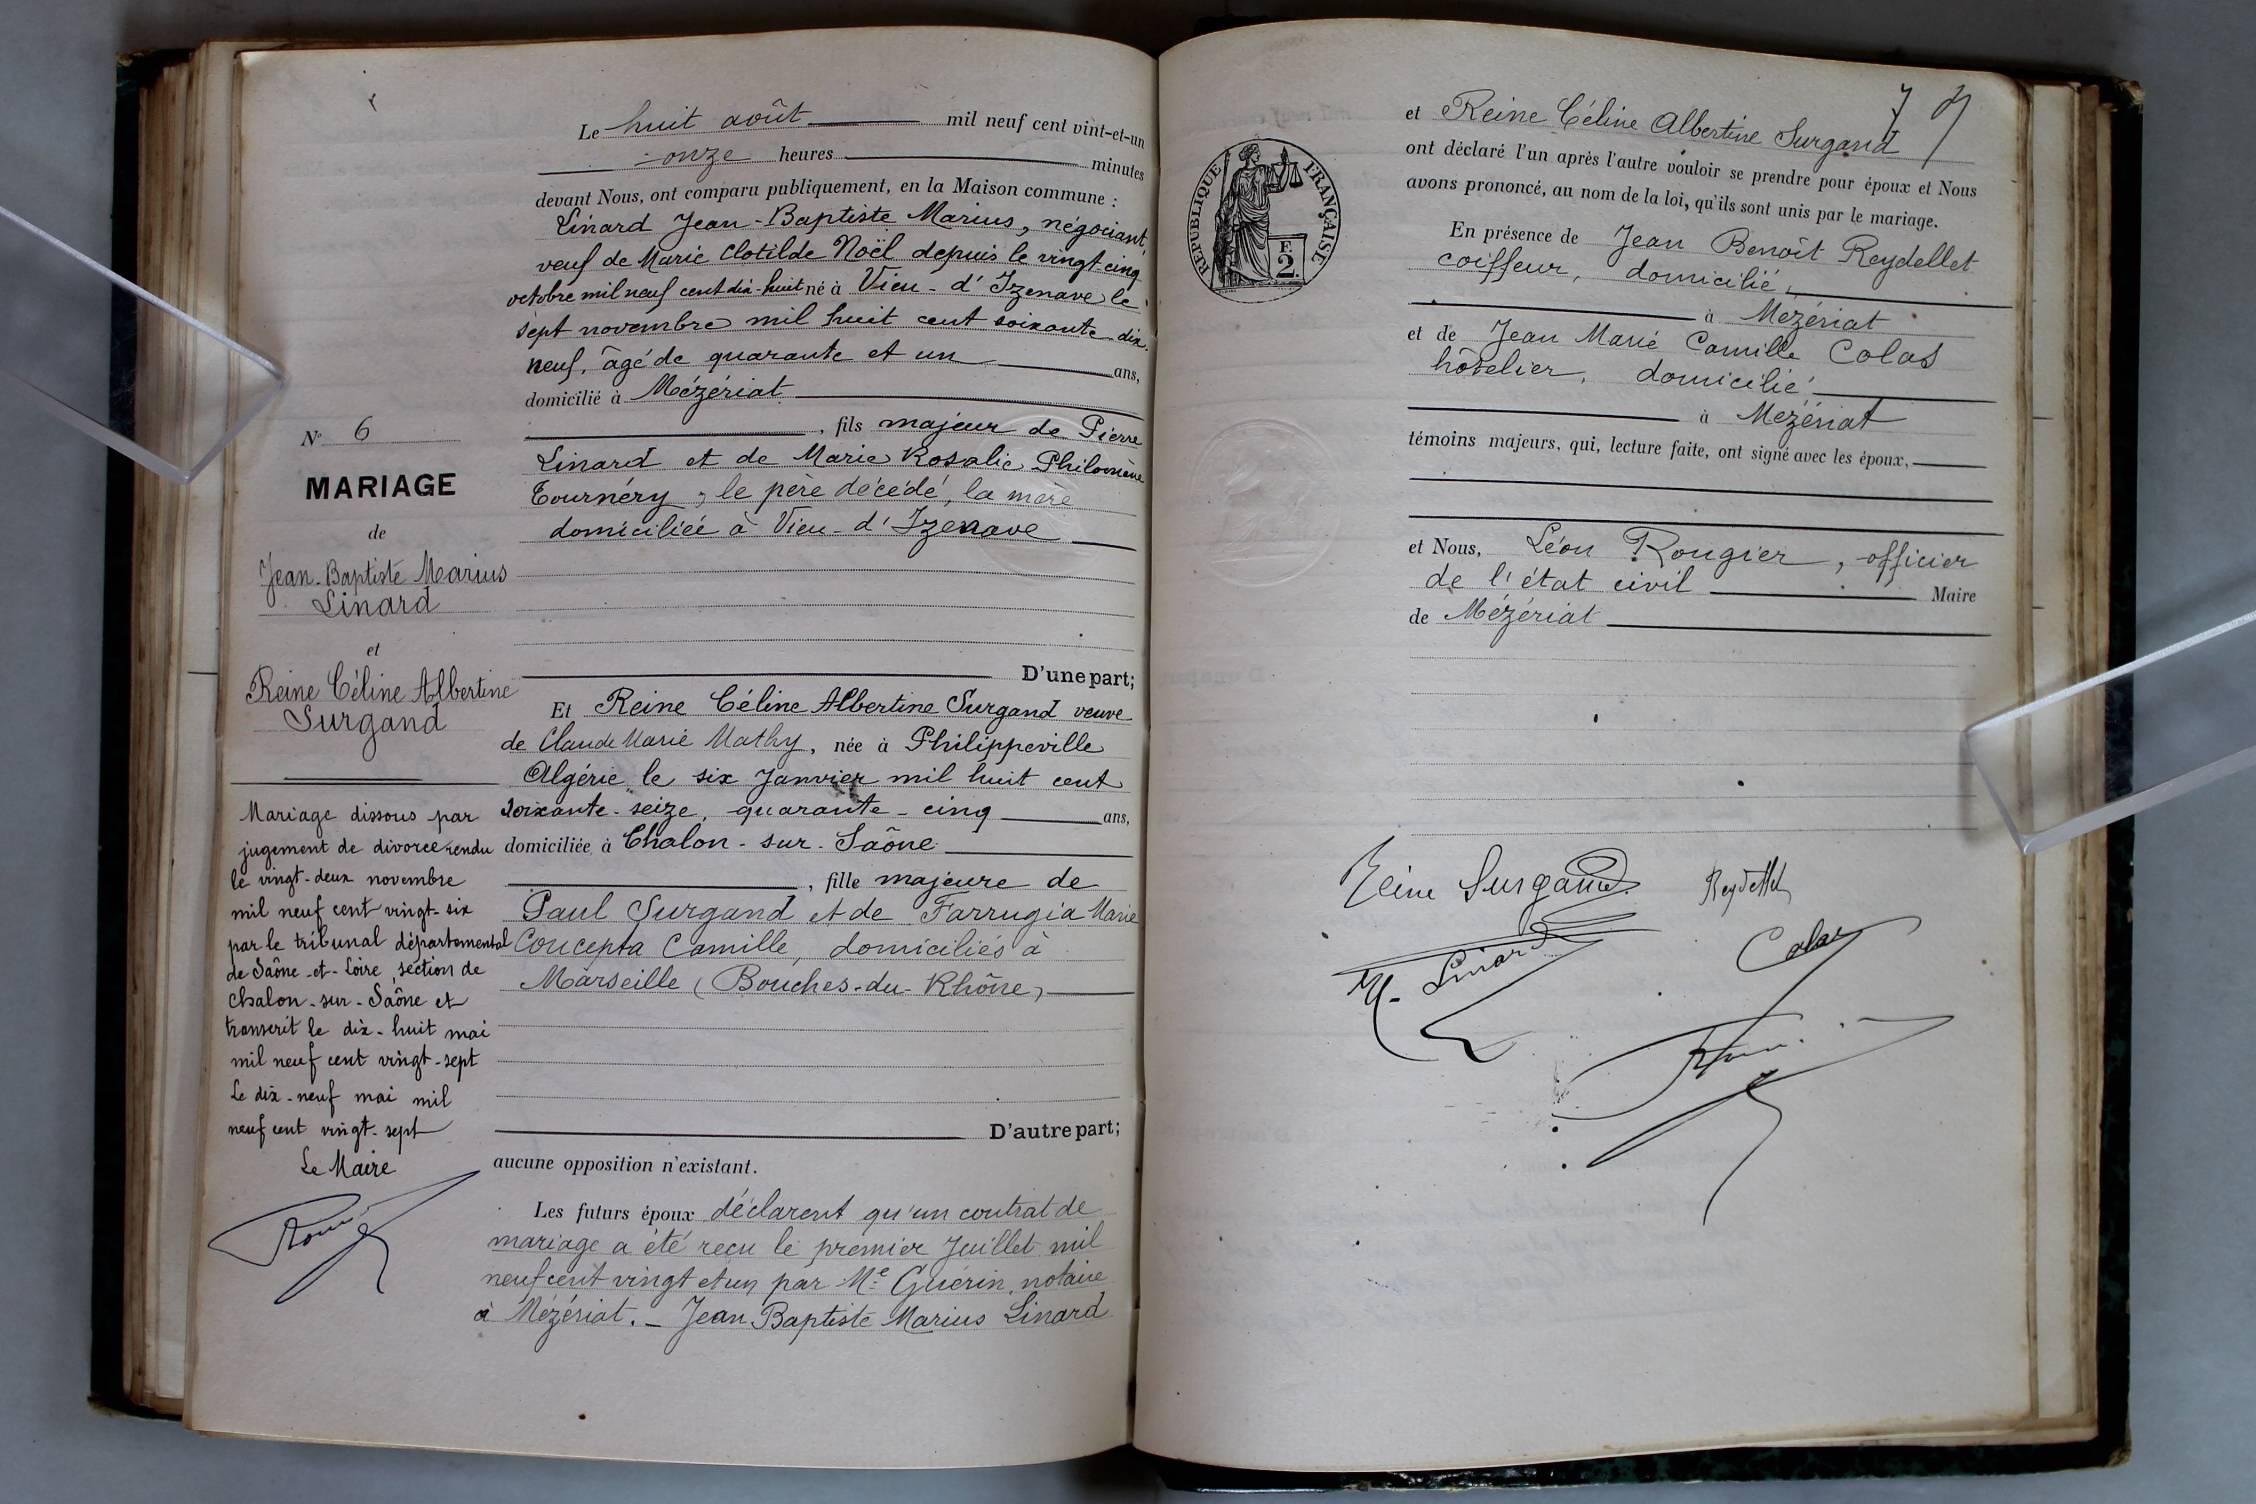 Le huit août mil neuf cent vint-et-un
onze heures minutes
devant Nous, ont comparu publiquement, en la Maison commune :
Linard Jean-Baptiste Marius, négociant,
veuf de Marie Clotilde Noël depuis le vingt-cinq
octobre mil neuf cent dix-huit né à Vieu-d'Izenave le
sept novembre mil huit cent soixante-dix-
neuf, âgé de quarante et un ans,
domicilié à Mézériat
, fils majeur de Pierre
Linard et de Marie Rosalie Philomène
Tournéry, le père décédé, la mère
domiciliée à Vieu-d'Izenave
D'une part;
Et Reine Céline Albertine Surgand veuve
de Claude Marie Mathy, née à Philippeville
Algérie le six Janvier mil huit cent
soixante-seize, quarante-cinq ans,
domiciliée à Chalon-sur-Saône
, fille majeure de
Paul Surgand et de Farrugia Marie
Concepta Camille, domiciliés à
Marseille (Bouches-du-Rhône)
D'autre part;
aucune opposition n'existant.
Les futurs époux déclarent qu'un contrat de
mariage a été reçu le premier Juillet mil
neuf cent vingt et un par Me Guérin, notaire
à Mézériat. - Jean Baptiste Marius Linard
No 6
MARIAGE
de
Jean-Baptiste Marius
Linard
et
Reine Céline Albertine
Surgand
Mariage dissous par
jugement de divorce rendu
le vingt-deux novembre
mil neuf cent vingt-six
par le tribunal départemental
de Saône-et-Loire, section de
Chalon-sur-Saône et
transcrit le dix-huit mai
mil neuf cent vingt-sept
Le dix-neuf mai mil
neuf cent vingt-sept
Le Maire
7
RÉPUBLIQUE FRANÇAISE
F.
2.
et Reine Céline Albertine Surgand
ont déclaré l'un après l'autre vouloir se prendre pour époux et Nous
avons prononcé, au nom de la loi, qu'ils sont unis par le mariage.
En présence de Jean Benoît Reydellet
coiffeur, domicilié,
à Mézériat
et de Jean Marie Camille Colas
hôtelier, domicilié
à Mézériat
témoins majeurs, qui, lecture faite, ont signé avec les époux,
et Nous, Léon Rougier, officier
de l'état civil Maire
de Mézériat
Reine Surgand
Reydellet
M. Linard
Colas